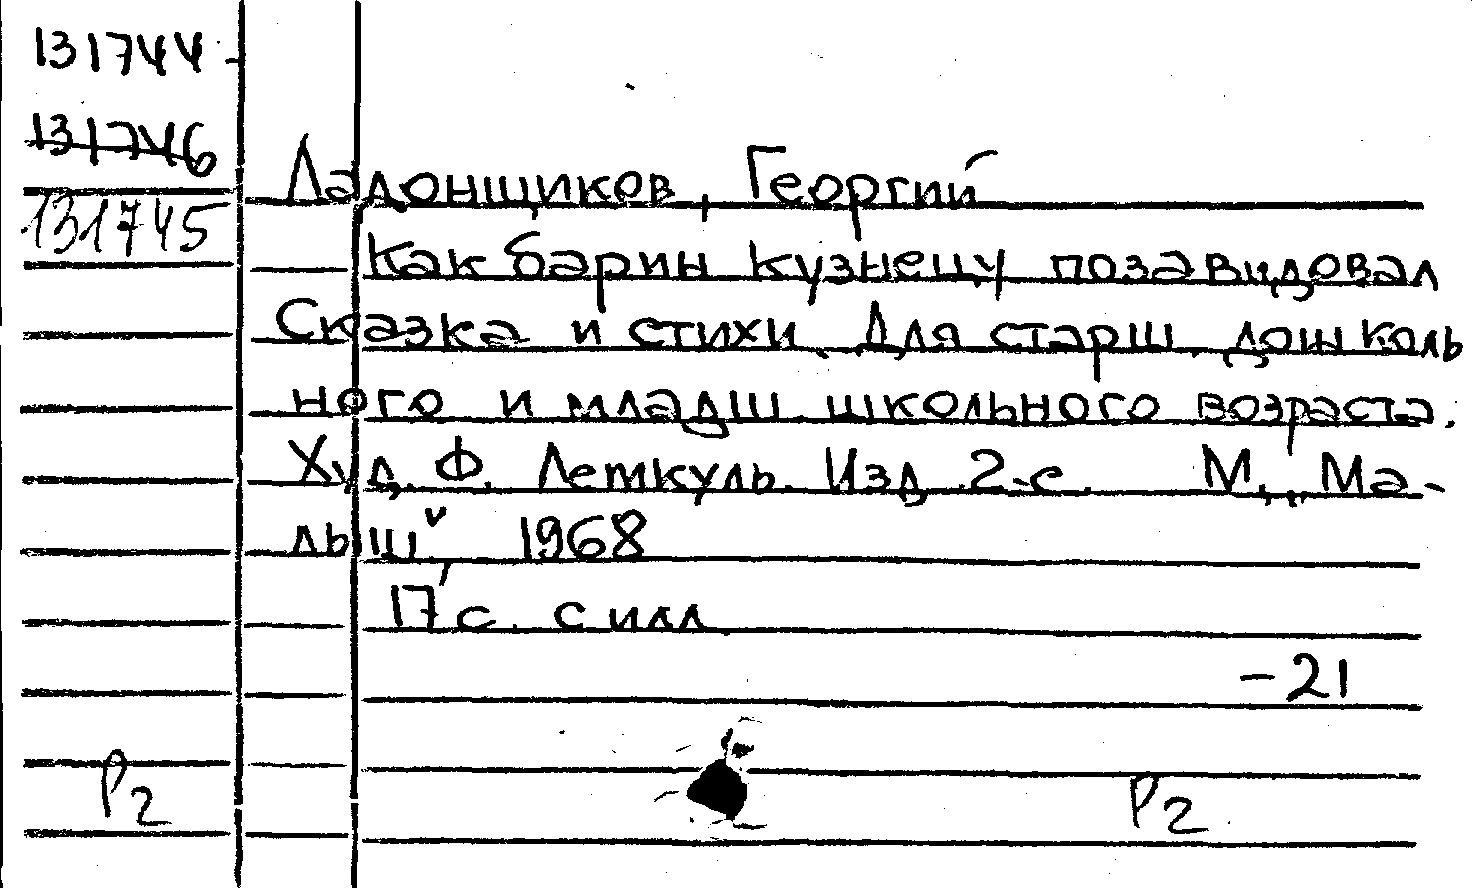 131744
131746
131745
Ладонщиков, Георгий
Как барин кузнецу позавидовал
Сказка и стихи. Для старш. дошколь
ного и младш. школьного возраста.
Худ. Ф. Леткуль. Изд. 2-е. М., „Ма-
лыш" 1968
17 с. с илл.
-21
Р2
Р2